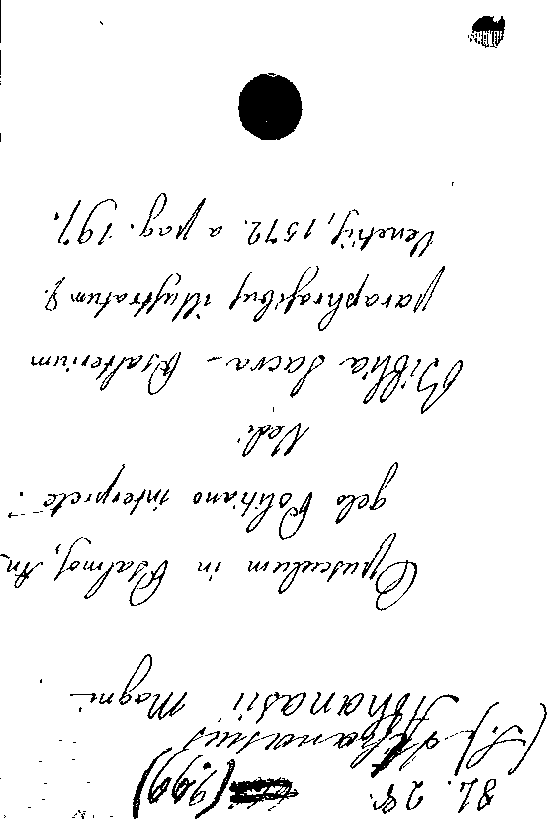 82. 28.
(S.) Athanasius
Athanasii Magni
Opusculum in Psalmos, An_
gelo Politiano interprete.
Vedi
Biblia Sacra - Psalterium
paraphrasibus illustratum &.
Venetiis, 1572. a pag. 197.